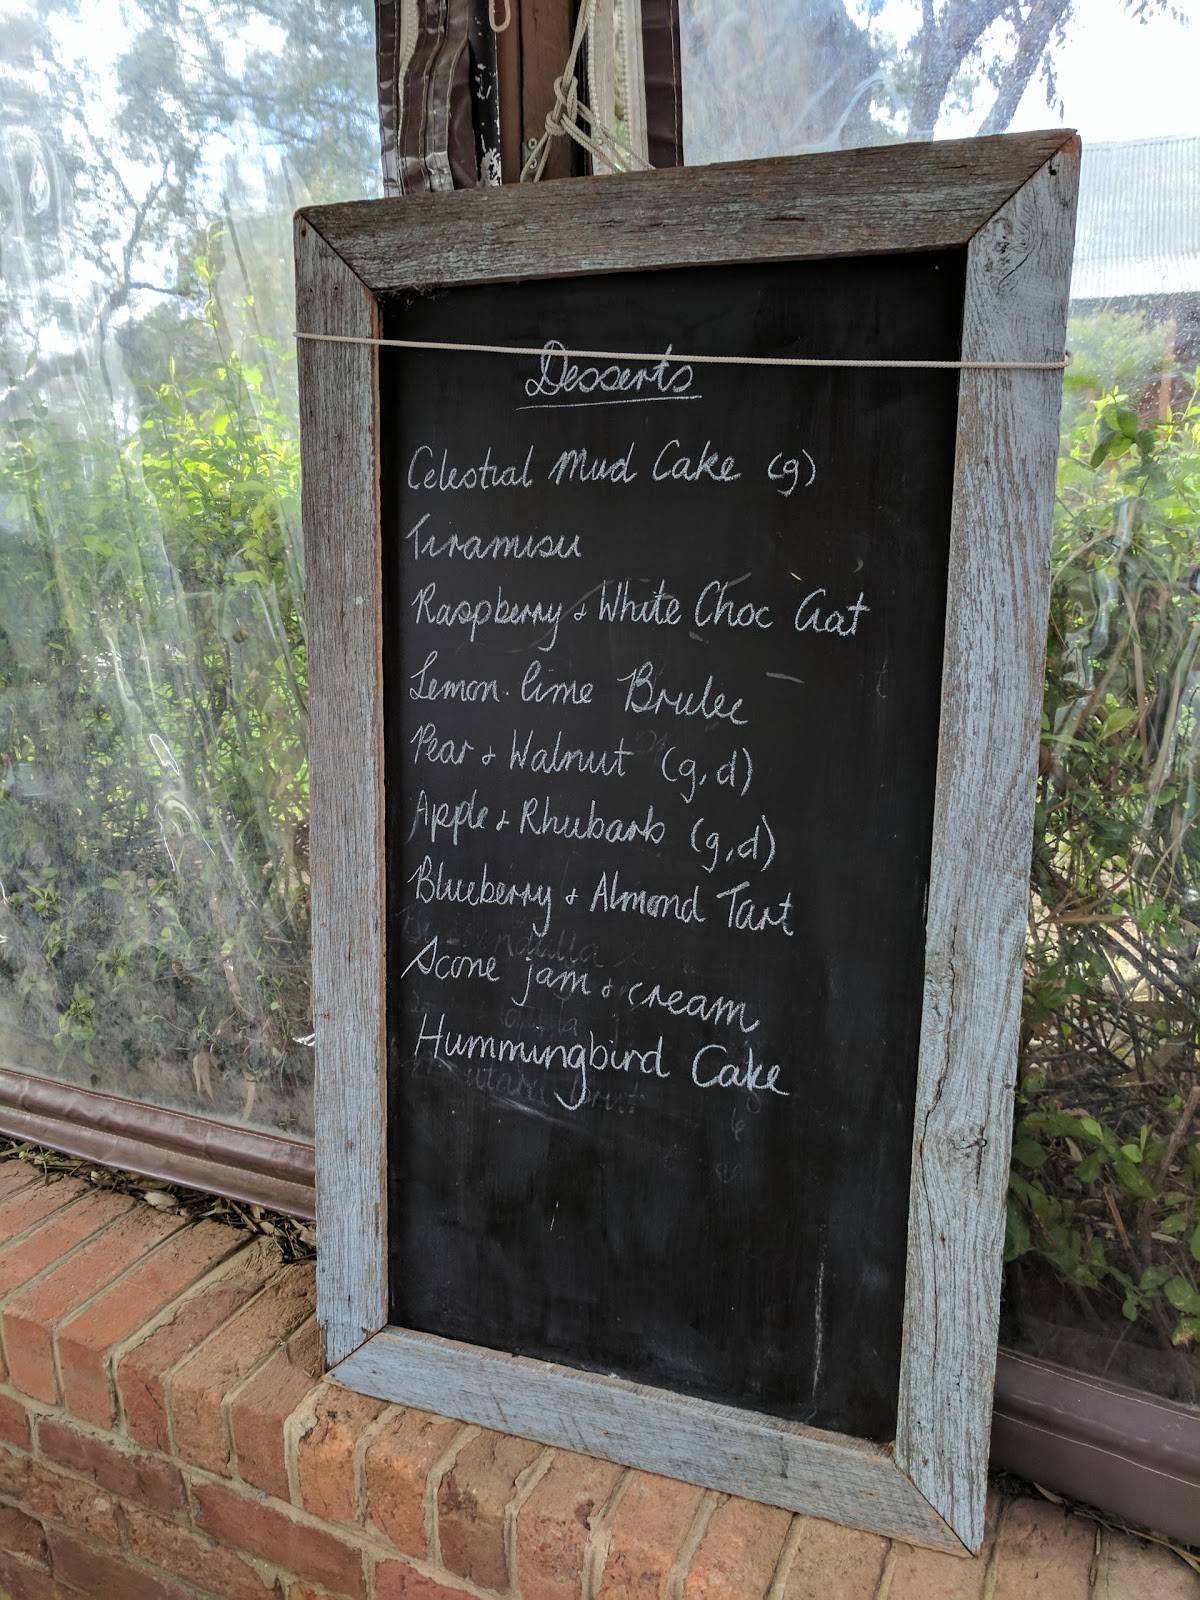 Desserts
Celestial Mud Cake (g)
Tiramisu
Raspberry & White Choc Gat
Lemon. lime Brulee
Pear & Walnut (g,d)
Apple & Rhubarb (g,d)
Blueberry & Almond Tart
Scone jam & cream
Hummingbird Cake